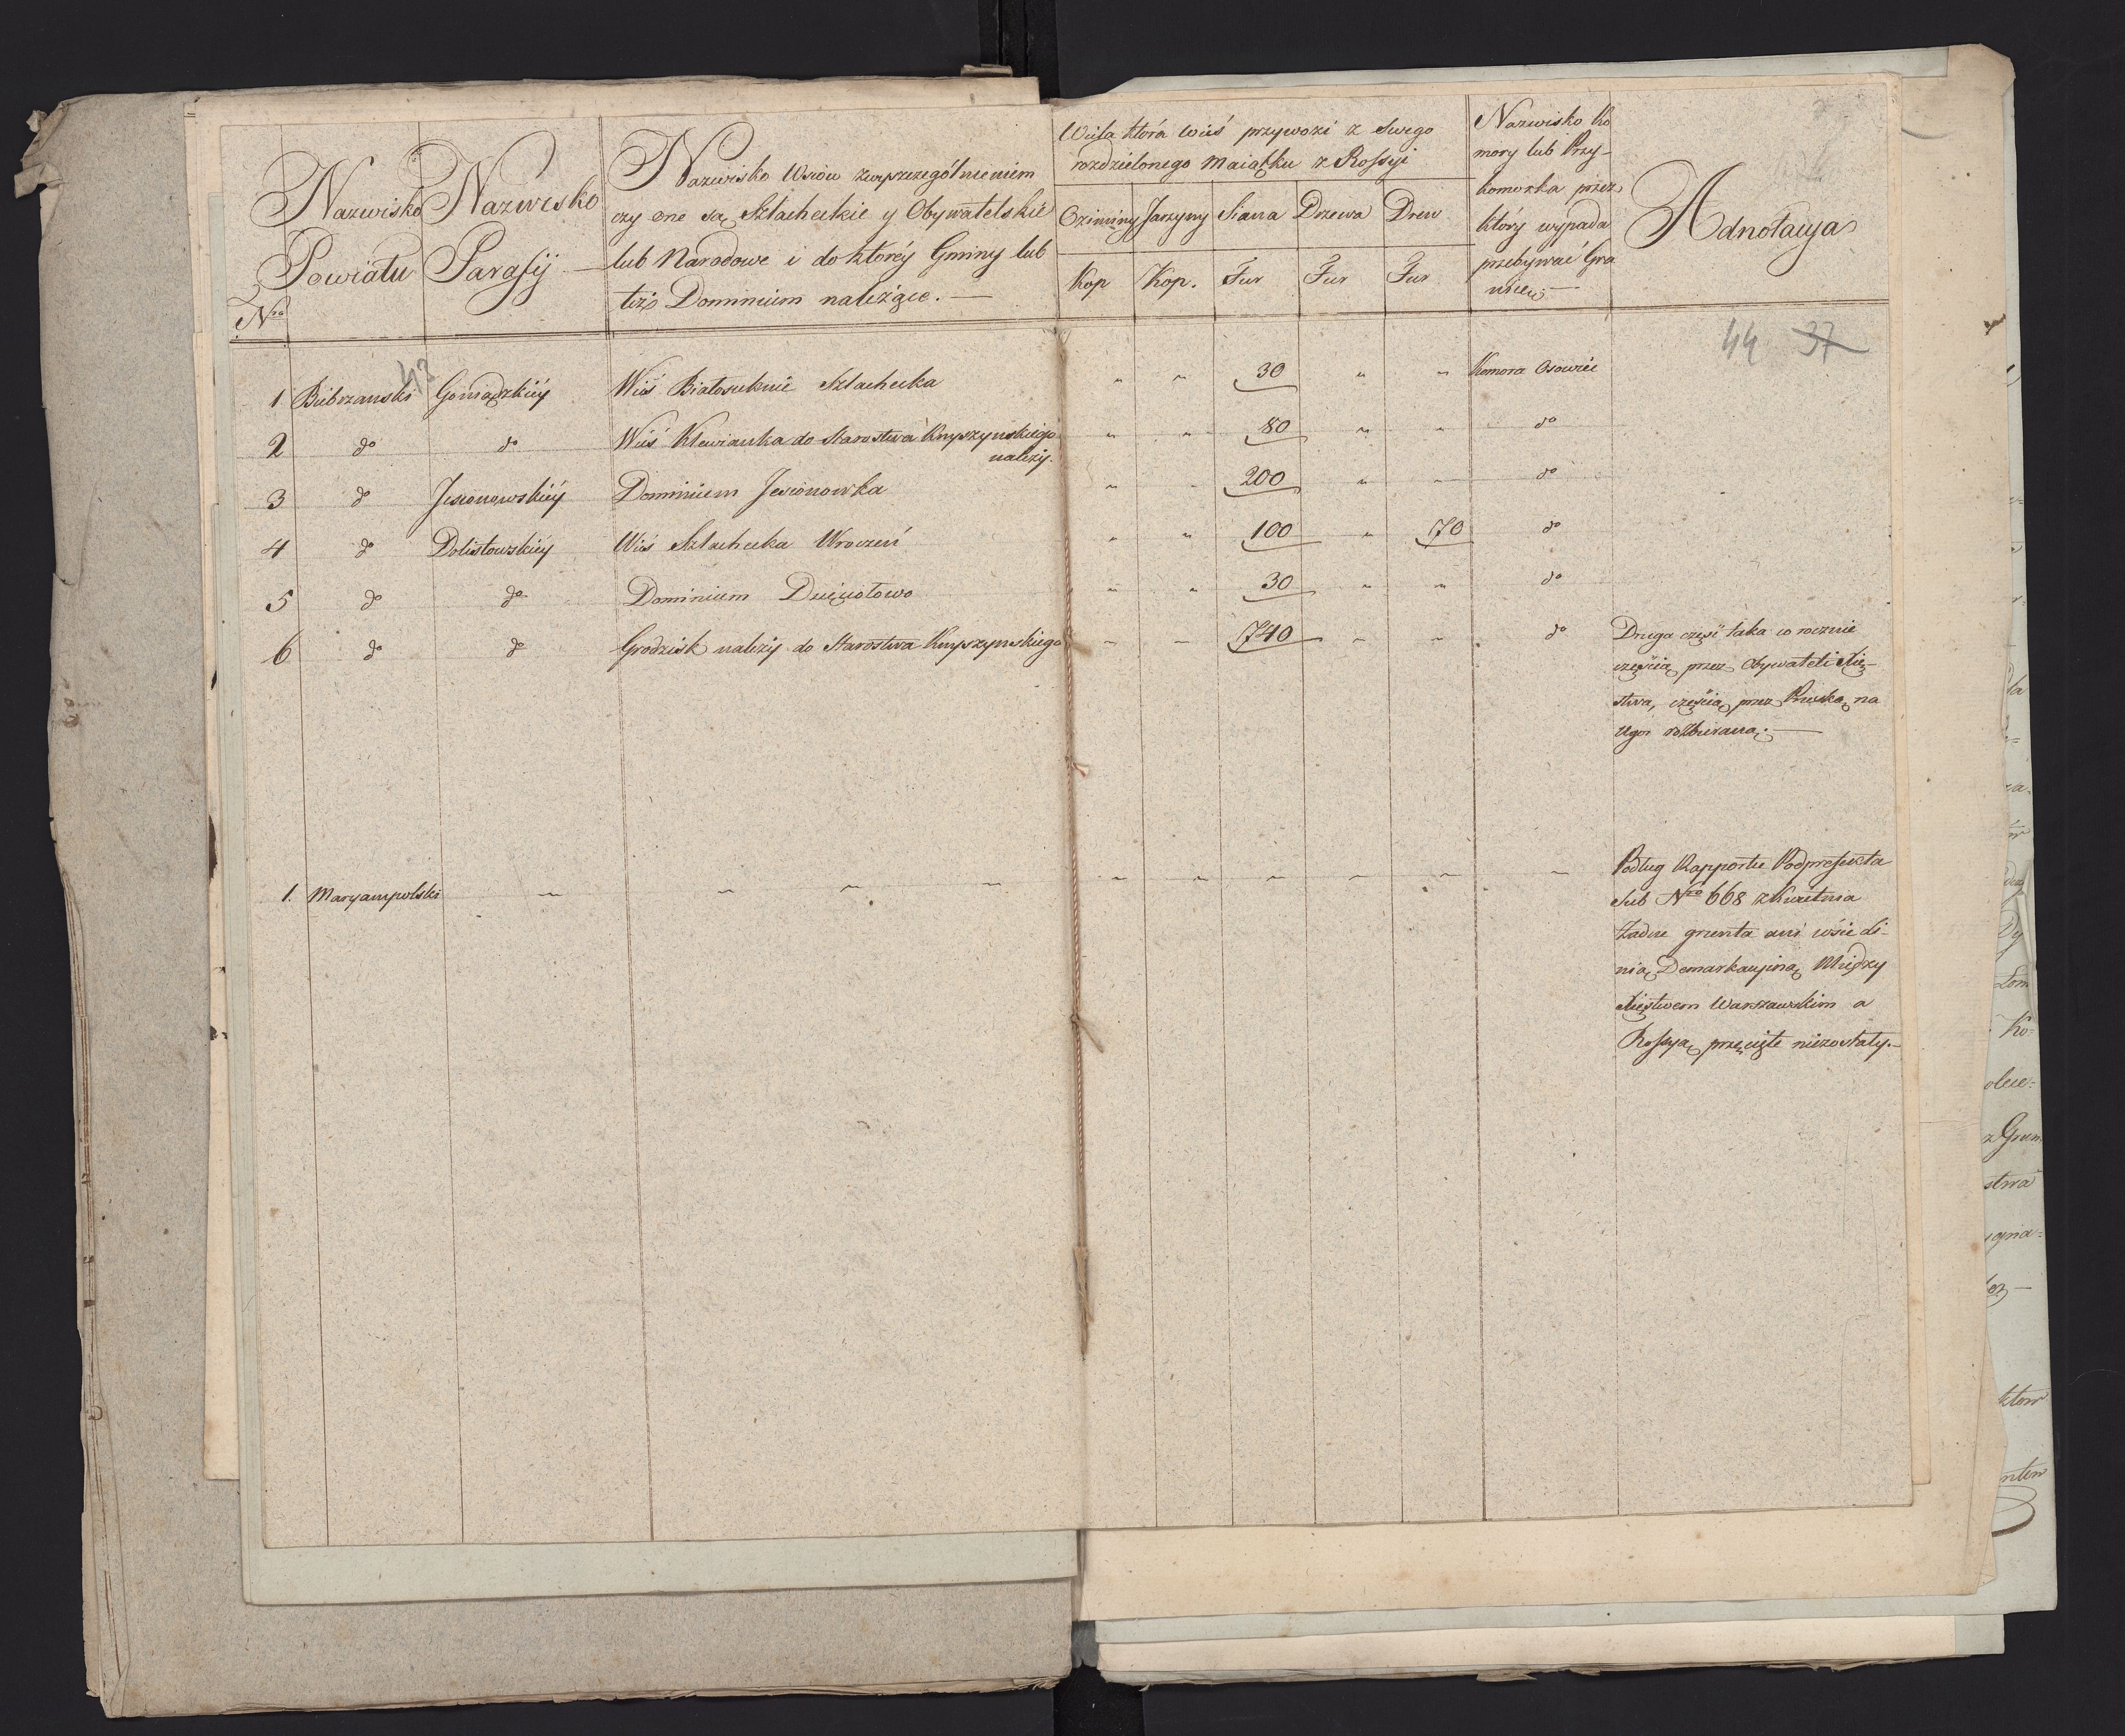 Nro
Nazwisko
Powiatu
Nazwisko
Parafij
Nazwisko Wsiow zwyszczególnieniem
czy one są Szlacheckie y Obywatelskie
lub Narodowe i do którey Gminy lub
też Dominium należące. —
Wiela która wieś przywozi z swego
rozdzielonego maiątku z Rossyi
Oziminy Jarzyny Siana Drzewa Drew
Kop Kop. Fur Fur Fur
Nazwisko Ko
mory lub Przy-
komorka przez
który wypada
przebywać Gra
nicę —
Adnotacya
44 37
43
1 Biebrzanski Goniądzkiéy Wieś Białosuknie Szlachecka " " 30 " " Komora Osowiec
2 do do Wieś Klewianka do Starostwa Knyszynskiego " " 80 " " do
należy.
3 do Jesionowskiéy Dominium Jesionowka " " 200 " " do
4 do Dolistowskiéy Wieś Szlachecka Wroceń " " 100 " 70 do
5 do do Dominium Dzięciołowo " " 30 " " do
6 do do Grodzisk należy do Starostwa Knyszynskiego " " 740 " " do
Druga część taka co rocznie
częścią przez Obywateli Xię-
stwa, częścią przez Pruską na
1. Maryampolski " " " " " " " " " "
Podług Rapportu Podprefekta
Sub Nro 668 z Kwietnia
Żadne grunta ani wsie li-
nią Demarkacyiną Między
Xięstwem Warszawskim a
Rossyą przecięte niezostały.—